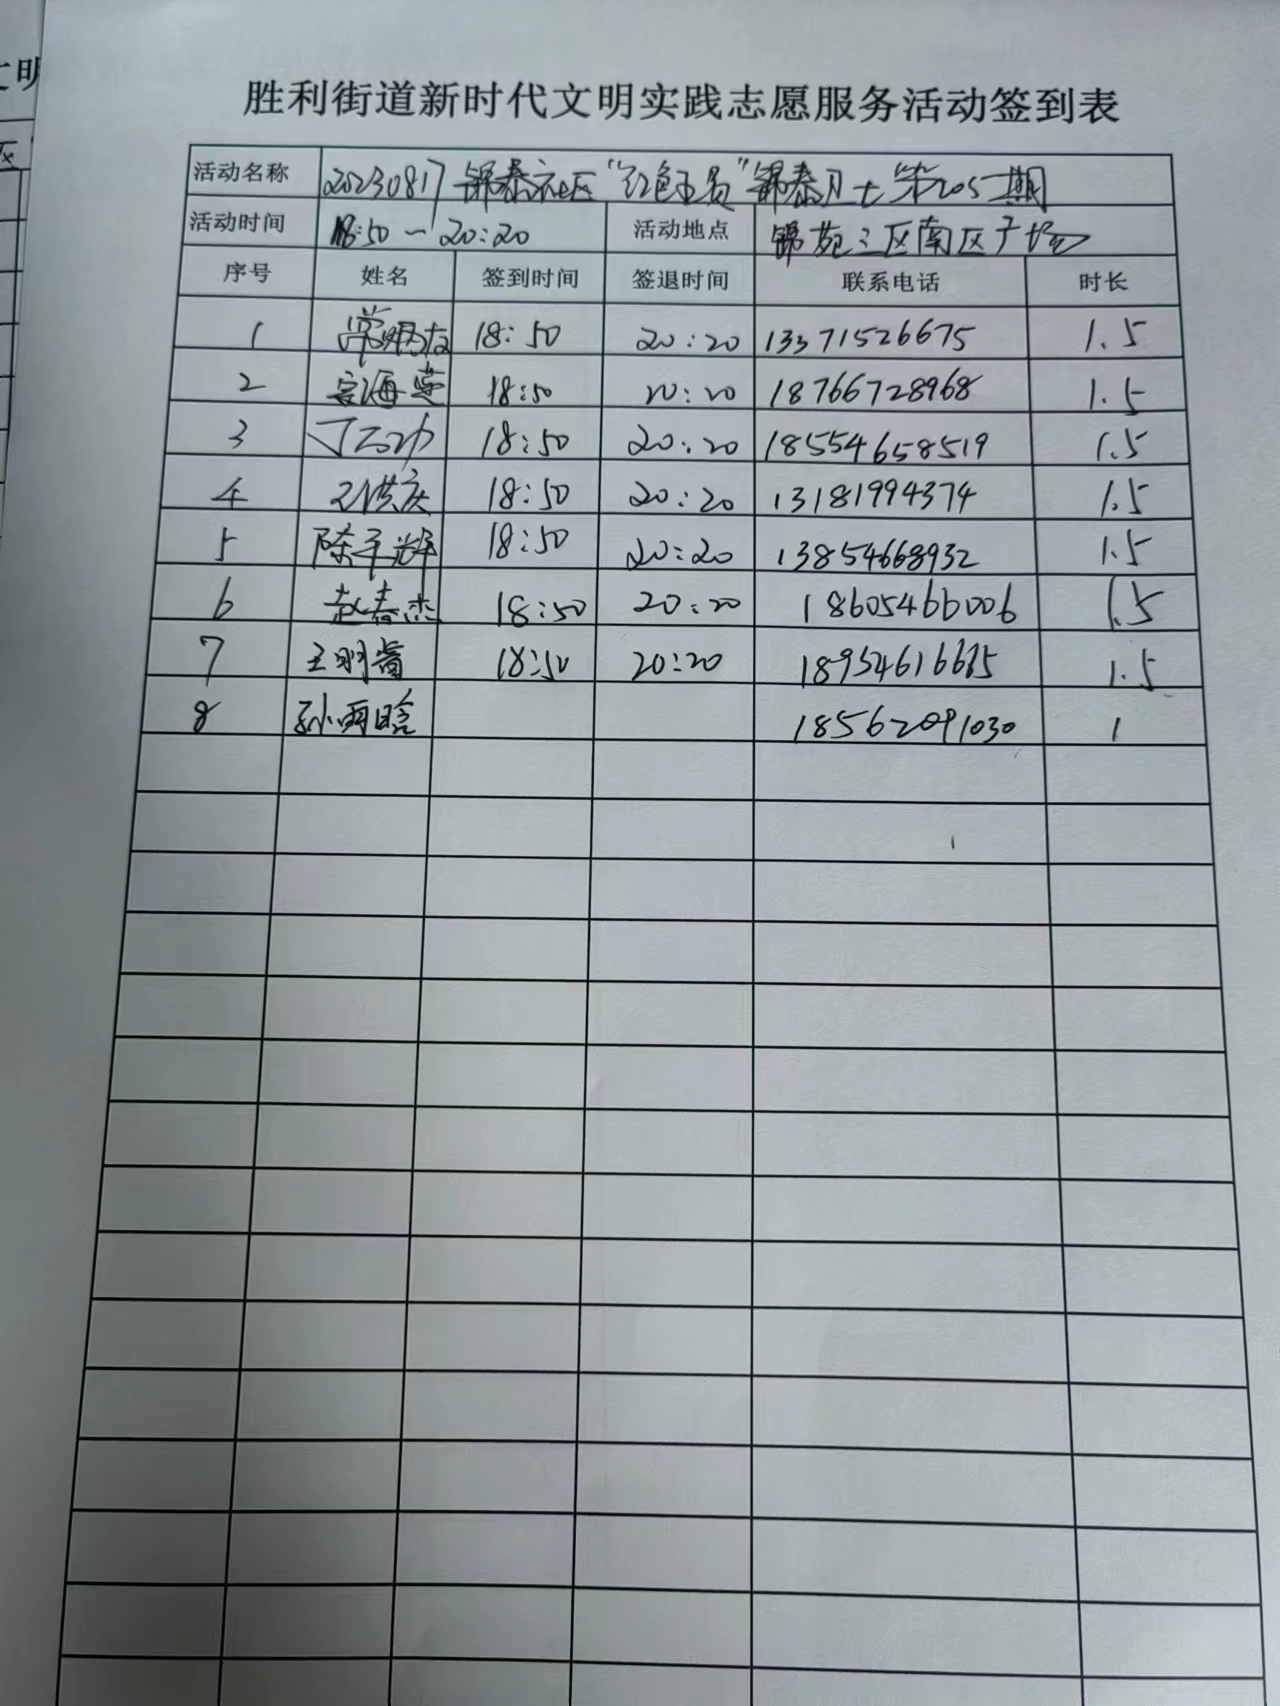 文明
区
胜利街道新时代文明实践志愿服务活动签到表
活动名称 20230817 锦泰社区"红色 "锦泰卫士第205期
活动时间 18:50—20:20 活动地点 锦苑三区南区广场
序号 姓名 签到时间 签退时间 联系电话 时长
1 18:50 20:20 13371526675 1.5
2 18:50 20:20 18766728968 1.5
3 丁云功 18:50 20:20 18554658519 1.5
4 洪庆 18:50 20:20 13181994374 1.5
5 陈平辉 18:50 20:20 13854668932 1.5
6 赵春杰 18:50 20:20 18605466006 1.5
7 王明 18:50 20:20 1.5
8 孙雨晗 18562091030 1